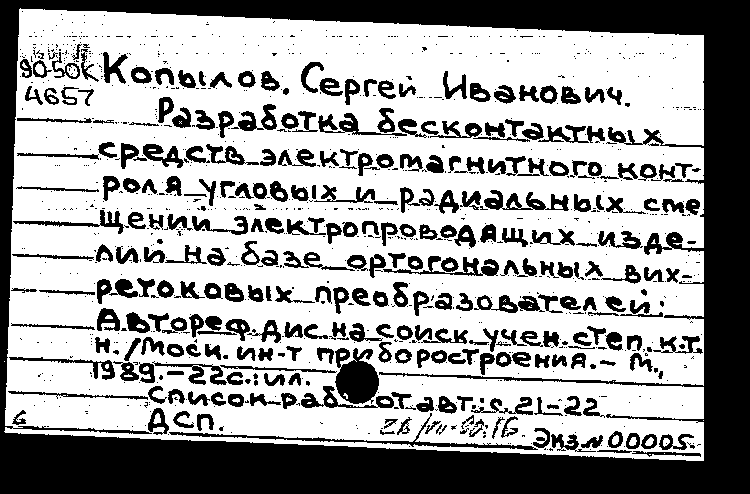 90-50К Копылов, Сергей Иванович.
4657
Разработка бесконтактных
средств электромагнитного конт-
роля угловых и радиальных сме
щений электропроводящих изде-
лий на базе ортогональных вих-
ретоковых преобразователей:
Автореф. дис. на соиск. учен. степ. к.т.
н. /Моск. ин-т приборостроения.- М.,
1989.-22с.:ил.
Список раб от авт.: с. 21-22
ДСП.
6 Экз.N 00005.